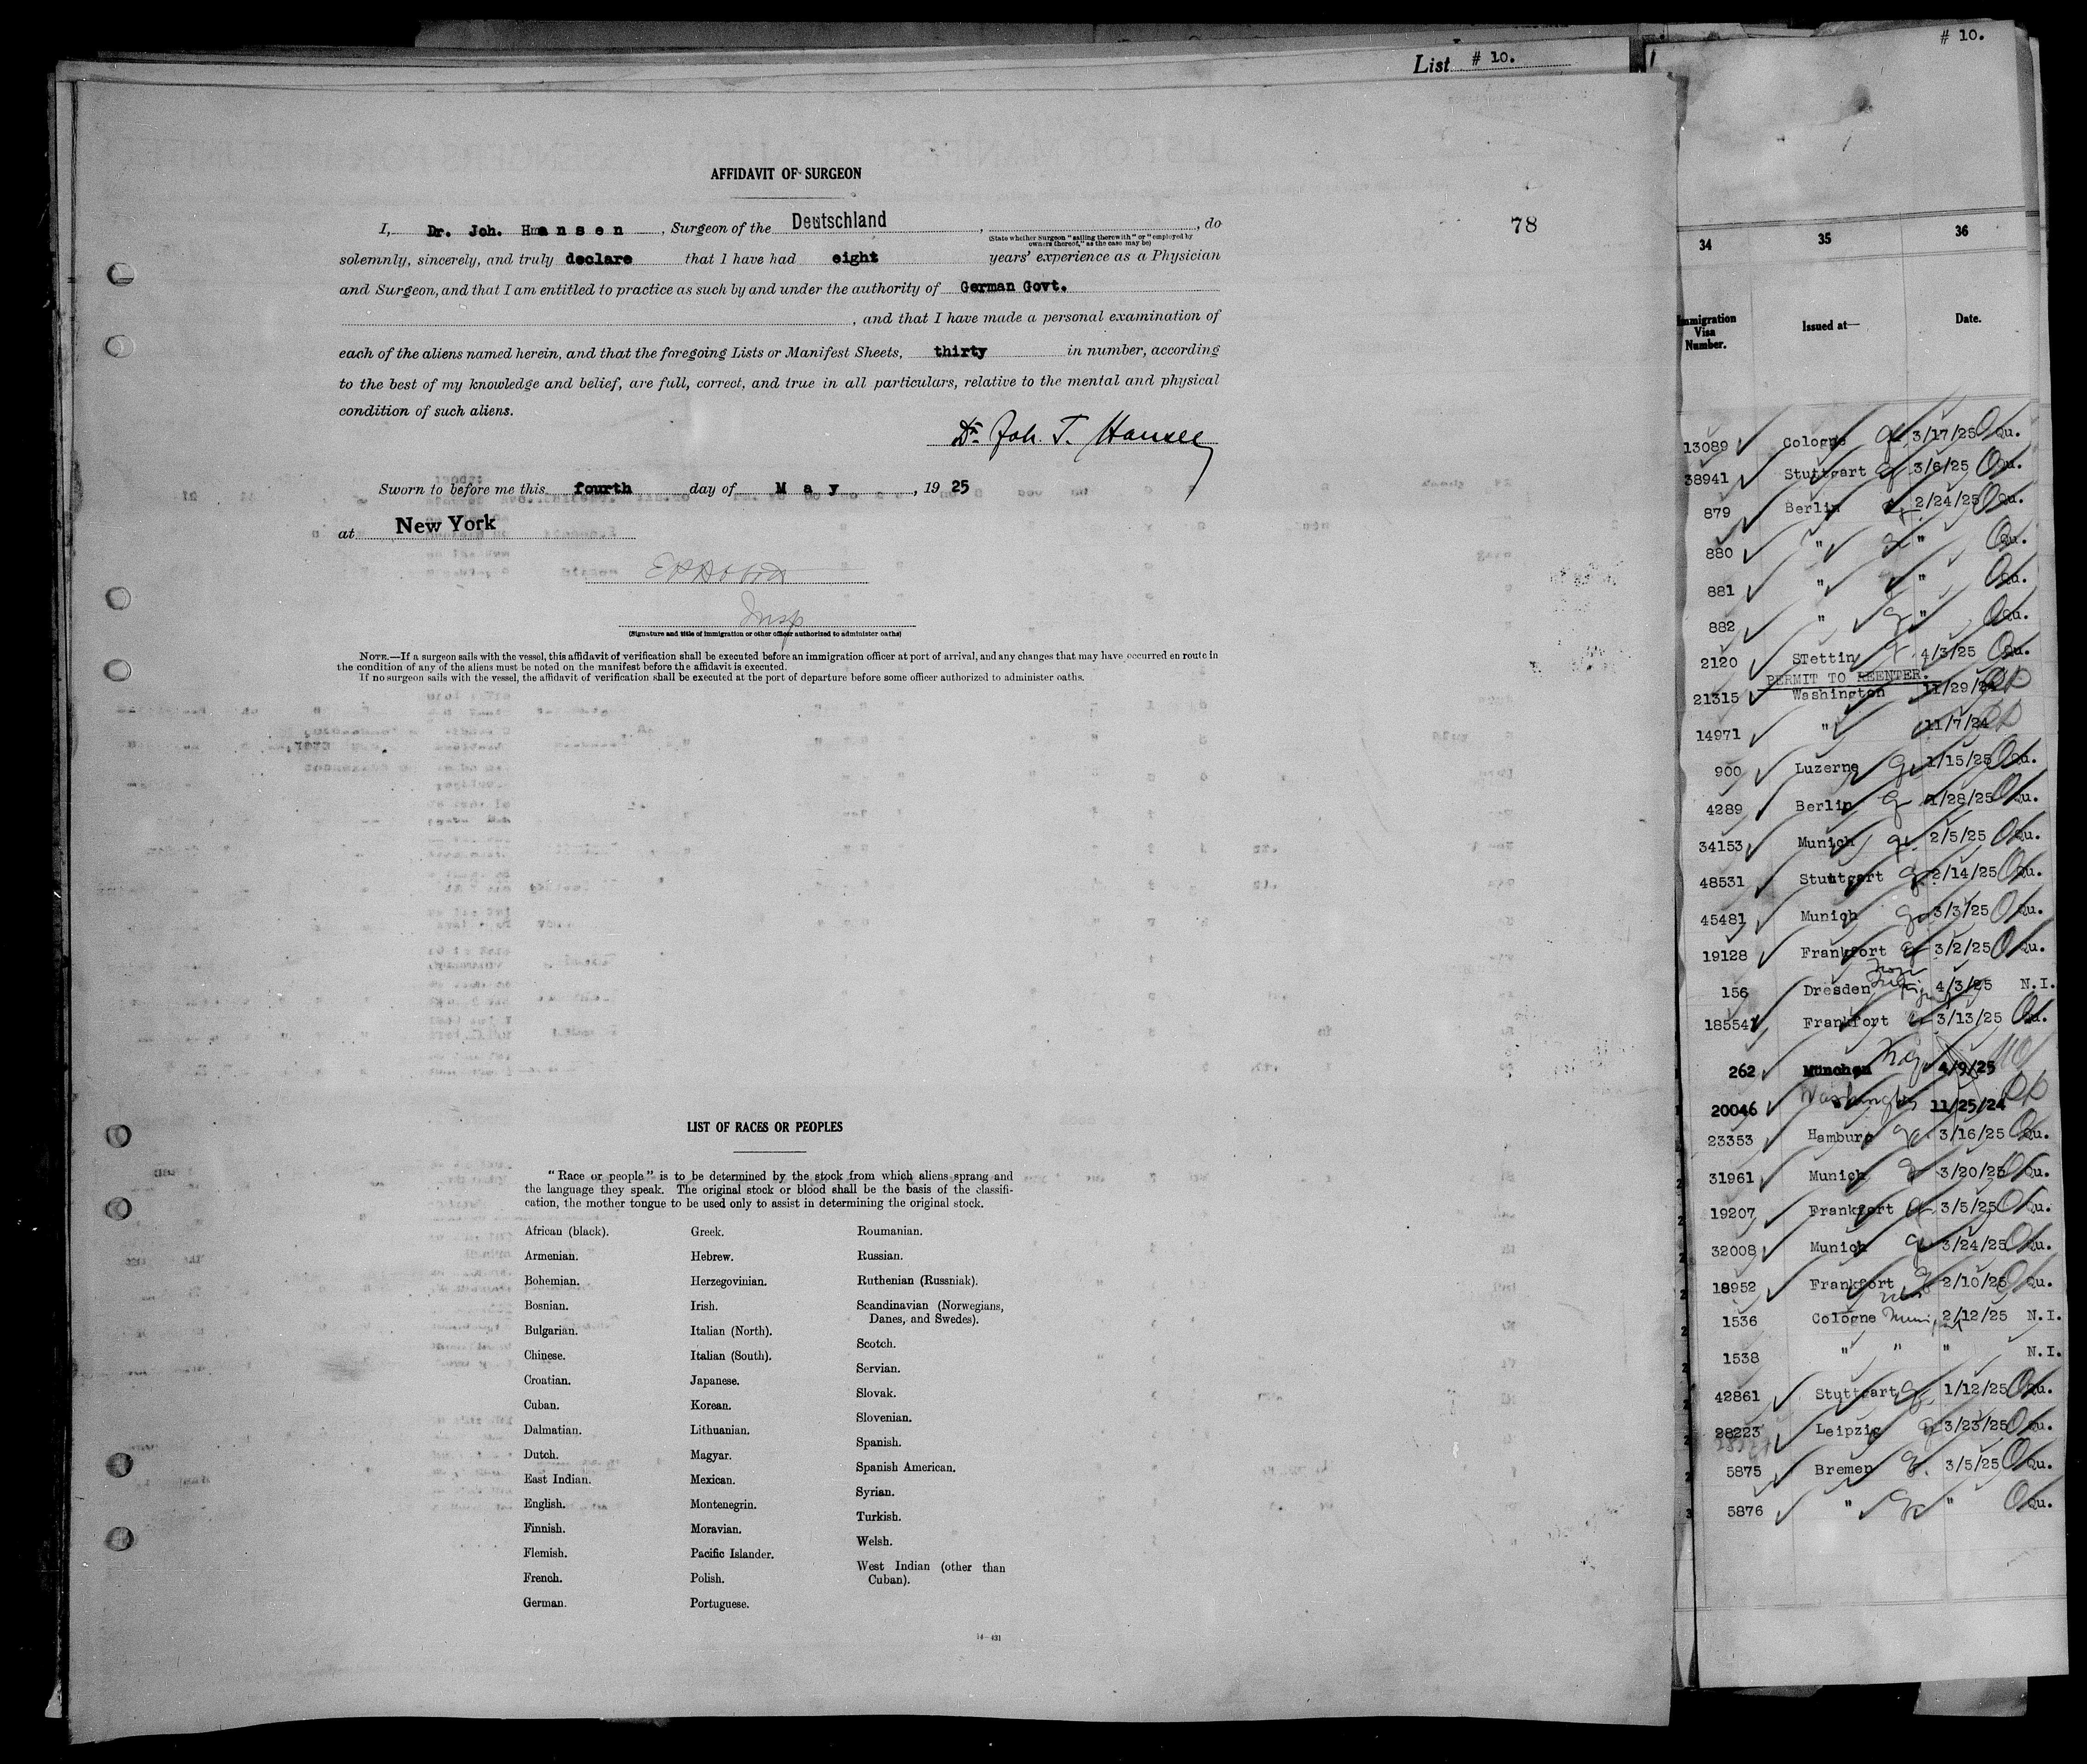 List # 10.
# 10.
AFFIDAVIT OF SURGEON
78
I, Dr. Joh. Hansen, Surgeon of the Deutschland, , do
(State whether Surgeon "sailing therewith" or "employed by
owners thereof," as the case may be)
solemnly, sincerely, and truly declare that I have had eight years' experience as a Physician
and Surgeon, and that I am entitled to practice as such by and under the authority of German Govt.
, and that I have made a personal examination of
each of the aliens named herein, and that the foregoing Lists or Manifest Sheets, thirty in number, according
to the best of my knowledge and belief, are full, correct, and true in all particulars, relative to the mental and physical
condition of such aliens.
Dr. Joh. T. Hansen
Sworn to before me this fourth day of May, 19 25
at New York
Insp
(Signature and title of immigration or other officer authorized to administer oaths)
NOTE.—If a surgeon sails with the vessel, this affidavit of verification shall be executed before an immigration officer at port of arrival, and any changes that may have occurred en route in
the condition of any of the aliens must be noted on the manifest before the affidavit is executed.
If no surgeon sails with the vessel, the affidavit of verification shall be executed at the port of departure before some officer authorized to administer oaths.
LIST OF RACES OR PEOPLES
"Race or people" is to be determined by the stock from which aliens sprang and
the language they speak. The original stock or blood shall be the basis of the classifi-
cation, the mother tongue to be used only to assist in determining the original stock.
African (black).
Armenian.
Bohemian.
Bosnian.
Bulgarian.
Chinese.
Croatian.
Cuban.
Dalmatian.
Dutch.
East Indian.
English.
Finnish.
Flemish.
French.
German.
Greek.
Hebrew.
Herzegovinian.
Irish.
Italian (North).
Italian (South).
Japanese.
Korean.
Lithuanian.
Magyar.
Mexican.
Montenegrin.
Moravian.
Pacific Islander.
Polish.
Portuguese.
Roumanian.
Russian.
Ruthenian (Russniak).
Scandinavian (Norwegians,
Danes, and Swedes).
Scotch.
Servian.
Slovak.
Slovenian.
Spanish.
Spanish American.
Syrian.
Turkish.
Welsh.
West Indian (other than
Cuban).
14—431
34 35 36
Immigration
Visa
Number.
Issued at—
Date.
13089 Cologne 3/17/25 Qu.
38941 Stuttgart 3/6/25 Qu.
879 Berlin 2/24/25 Qu.
880 " " Qu.
881 " " Qu.
882 " " Qu.
2120 STettin 4/3/25 Qu.
PERMIT TO REENTER.
21315 Washington 11/29/24
14971 " 11/7/24
900 Luzerne 1/15/25 Qu.
4289 Berlin 1/28/25 Qu.
34153 Munich 2/5/25 Qu.
48531 Stuttgart 2/14/25 Qu.
45481 Munich 3/3/25 Qu.
19128 Frankfort 3/2/25 Qu.
156 Dresden 4/3/25 N.I.
18554 Frankfort 3/13/25 Qu.
262 München 4/9/25
20046 Washington 11/25/24
23353 Hamburg 3/16/25 Qu.
31961 Munich 3/20/25 Qu.
19207 Frankfort 3/5/25 Qu.
32008 Munich 3/24/25 Qu.
18952 Frankfort 2/10/25 Qu.
1536 Cologne 2/12/25 N.I.
1538 " " " N.I.
42861 Stuttgart 1/12/25 Qu.
28223 Leipzig 3/23/25 Qu.
5875 Bremen 3/5/25 Qu.
5876 " " Qu.